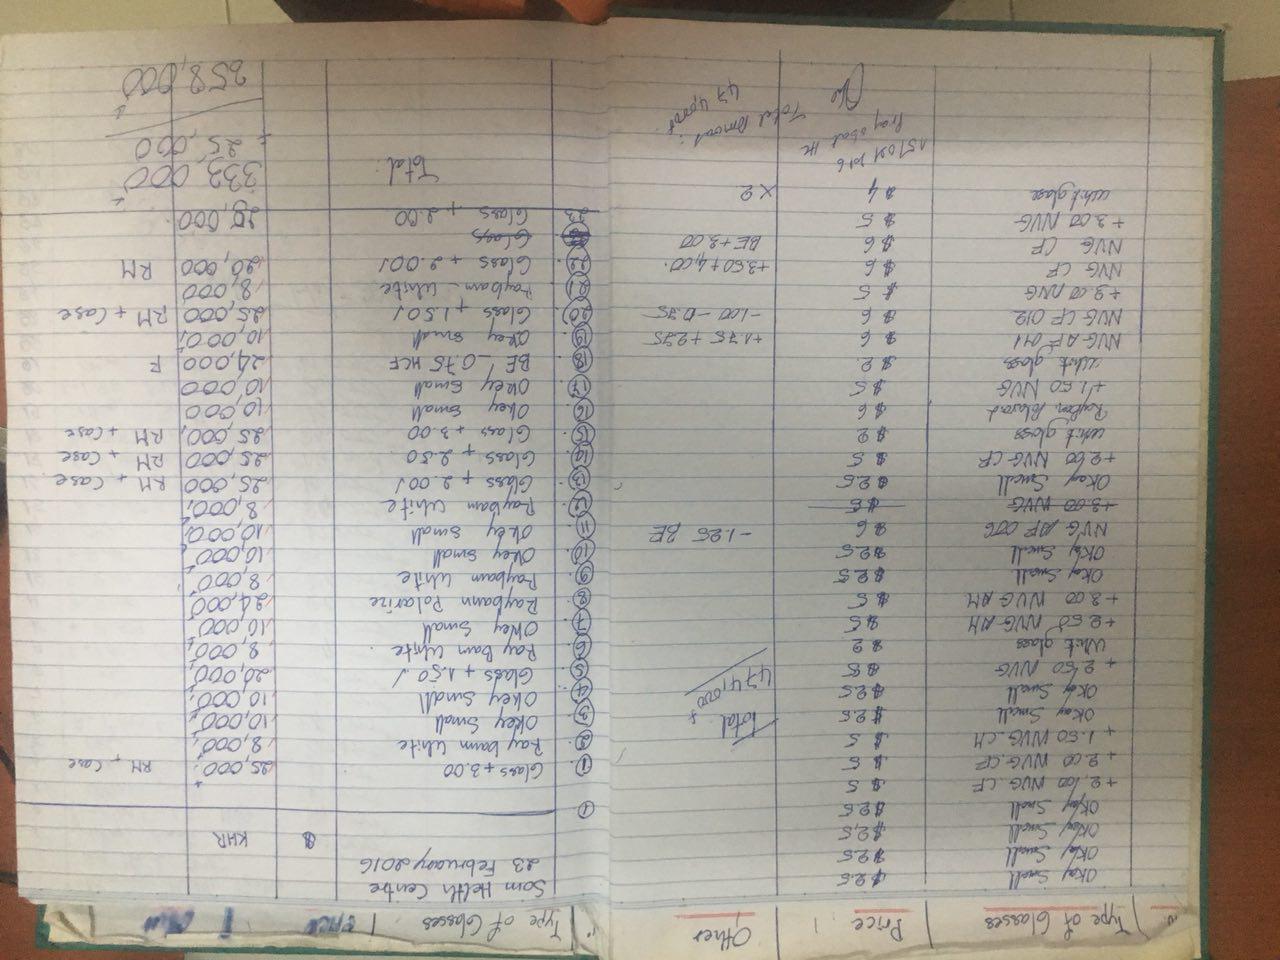 No. Type of Glasses Price Other
Okay Small $2.5
Okay Small $2.5
Okay Small $2,5
Okay Small $2.5
+2.00 NVG CF $5
+2.00 NVG.CF $5
+1.50 NVG CM $5
Okay Small $2.5 Total
Okay Small $2.5 474,000
+2.50 NVG $5
White glass $2
+2.50 NVG AM $5
+3.00 NVG AM $5
Okay Small $2.5
Okay Small $2.5
NVG AF 006 $6 -1.25 BE
+3.00 NVG $5
Okay Small $2.5
+2.00 NVG CF $5
white glass $2
RayBan Polaroid $6
+1.50 NVG $5
white glass $2
NVG AF 011 $6 +1.75 +2.75
NVG CF 012 $6 -1.00 -0.75
+3.00 NVG $5
NVG CF $6 +3.50+4,00.
NVG CF $6 BE+3.00
+3.00 NVG $5
white glase $4 ×2
Total Amount:
474,000
Type of Glasses Price Other
Som Helth Centre
23 February 2016
$ KHR
①
①. Glass +3.00 25,000 RM + Case
②. Ray bann White 8,000
③. Okey Small 10,000
④. Okey Small 10,000
⑤. Glass +1.50 ✓ 20,000
⑥. Ray Bam White 8,000
⑦. Okey Small 10,000
⑧. Raybann Polarize 24,000
⑨. Raybam White 8,000
⑩. Okey small 10,000
⑪. Okey small 10,000
⑫. Raybam White 8,000
⑬. Glass +2.00✓ 25,000 RM + Case
⑭. Glass +2.50 25,000 RM + Case
⑮. Glass +3.00 25,000 RM + Case
⑯. Okey small 10,000
⑰. Okey small 10,000
⑱. BE -0.75 HCF 24,000 F
⑲. Okey small 10,000
⑳. Glass +1.50✓ 25,000 RM + Case
㉑. Raybam-White 8,000
㉒. Glass +2.00✓ 20,000 RM
Glass
23 Glass +2.00 20,000
Total: 333,000
25,000
358,000